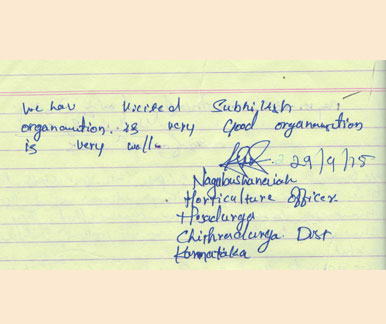 We have visited Subhiksh
organaution is very Good organaution
is very well.
29/9/15
Nagabushanaiah
Horticulture Officer
Hosadurga
Chithradurga Dist
Karnataka